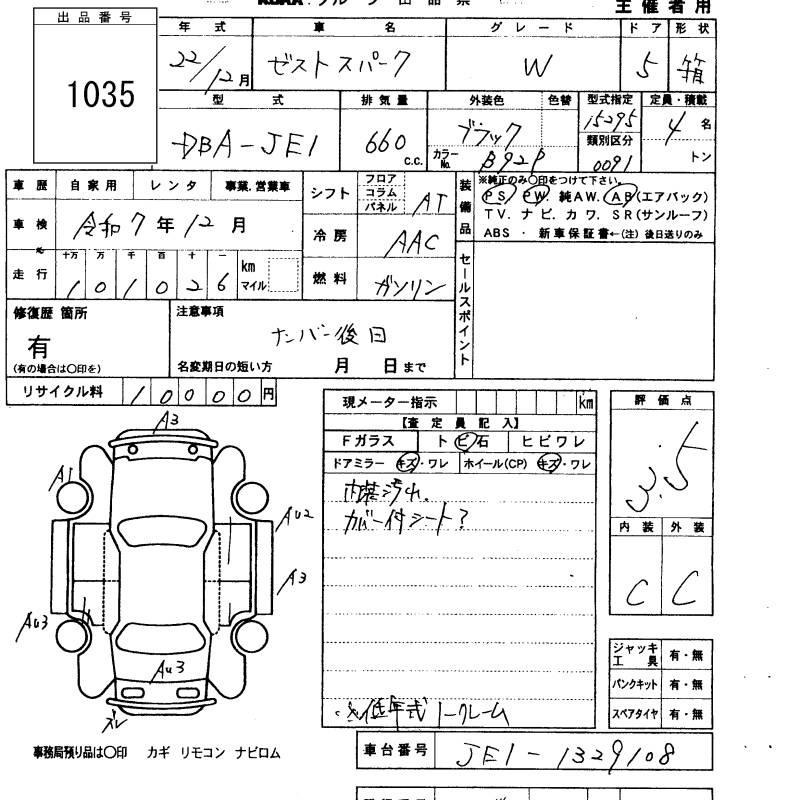 主催者用
出品番号
1035
年式 車名 グレード ドア 形状
22/12月 ゼストスパーク W 5 箱
型式 排気量 外装色 色替 型式指定 定員・積載
DBA-JE1 660 c.c. ブラック 15295 4名
カラーNo. B92P 類別区分 0091 トン
車歴 自家用 レンタ 事業.営業車
車検 令和7年12月
走行 十万 万 千 百 十 一
101026 km マイル
シフト フロア コラム パネル AT
冷房 AAC
燃料 ガソリン
装備品
※純正のみ〇印をつけて下さい。
PS. PW. 純AW. AB(エアバック)
TV. ナビ. カワ. SR(サンルーフ)
ABS・新車保証書←(注)後日送りのみ
セールスポイント
修復歴 箇所
有
(有の場合は〇印を)
注意事項
ナンバー後日
名変期日の短い方 月 日まで
リサイクル料 10000円
現メーター指示 km
【査定員記入】
Fガラス ト ビ 石 ヒビワレ
ドアミラー キズ・ワレ ホイール(CP) キズ・ワレ
内装汚れ.
カバー付シート?
※低年式ノークレーム
評価点
3.5
内装 外装
C C
ジャッキ工具 有・無
パンクキット 有・無
スペアタイヤ 有・無
A3
A1
AU2
A3
AU3
AU3
ズレ
事務局預り品は〇印 カギ リモコン ナビロム
車台番号 JE1-1329108